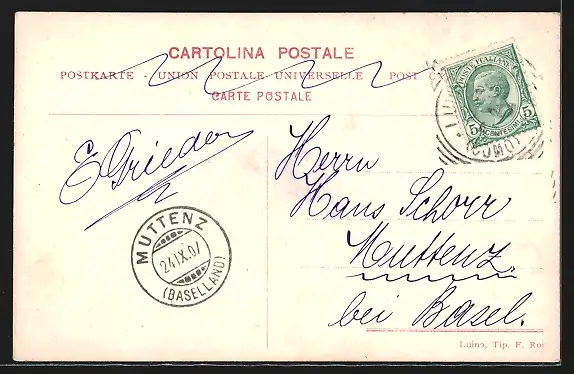 CARTOLINA POSTALE
POSTKARTE - UNION POSTALE UNIVERSELLE POST C
CARTE POSTALE
POSTE ITALIANE
5 CENTESIMI 5
LUI
(COMO)
E Grieder
Herrn
Hans Schorr
Muttenz.
bei Basel.
MUTTENZ
24 IX. 07
(BASELLAND)
Luino, Tip. F. Roi